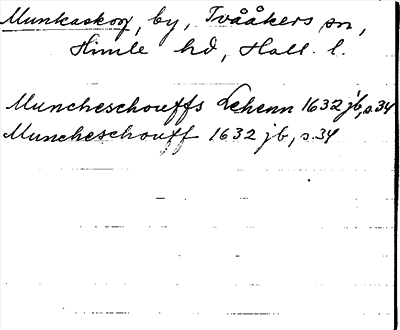 Munkaskog, by, Tvååkers sn,
Himle hd, Hall. l.
Muncheschouffs Lehenn 1632 jb, s. 34
Muncheschouff 1632 jb, s. 34